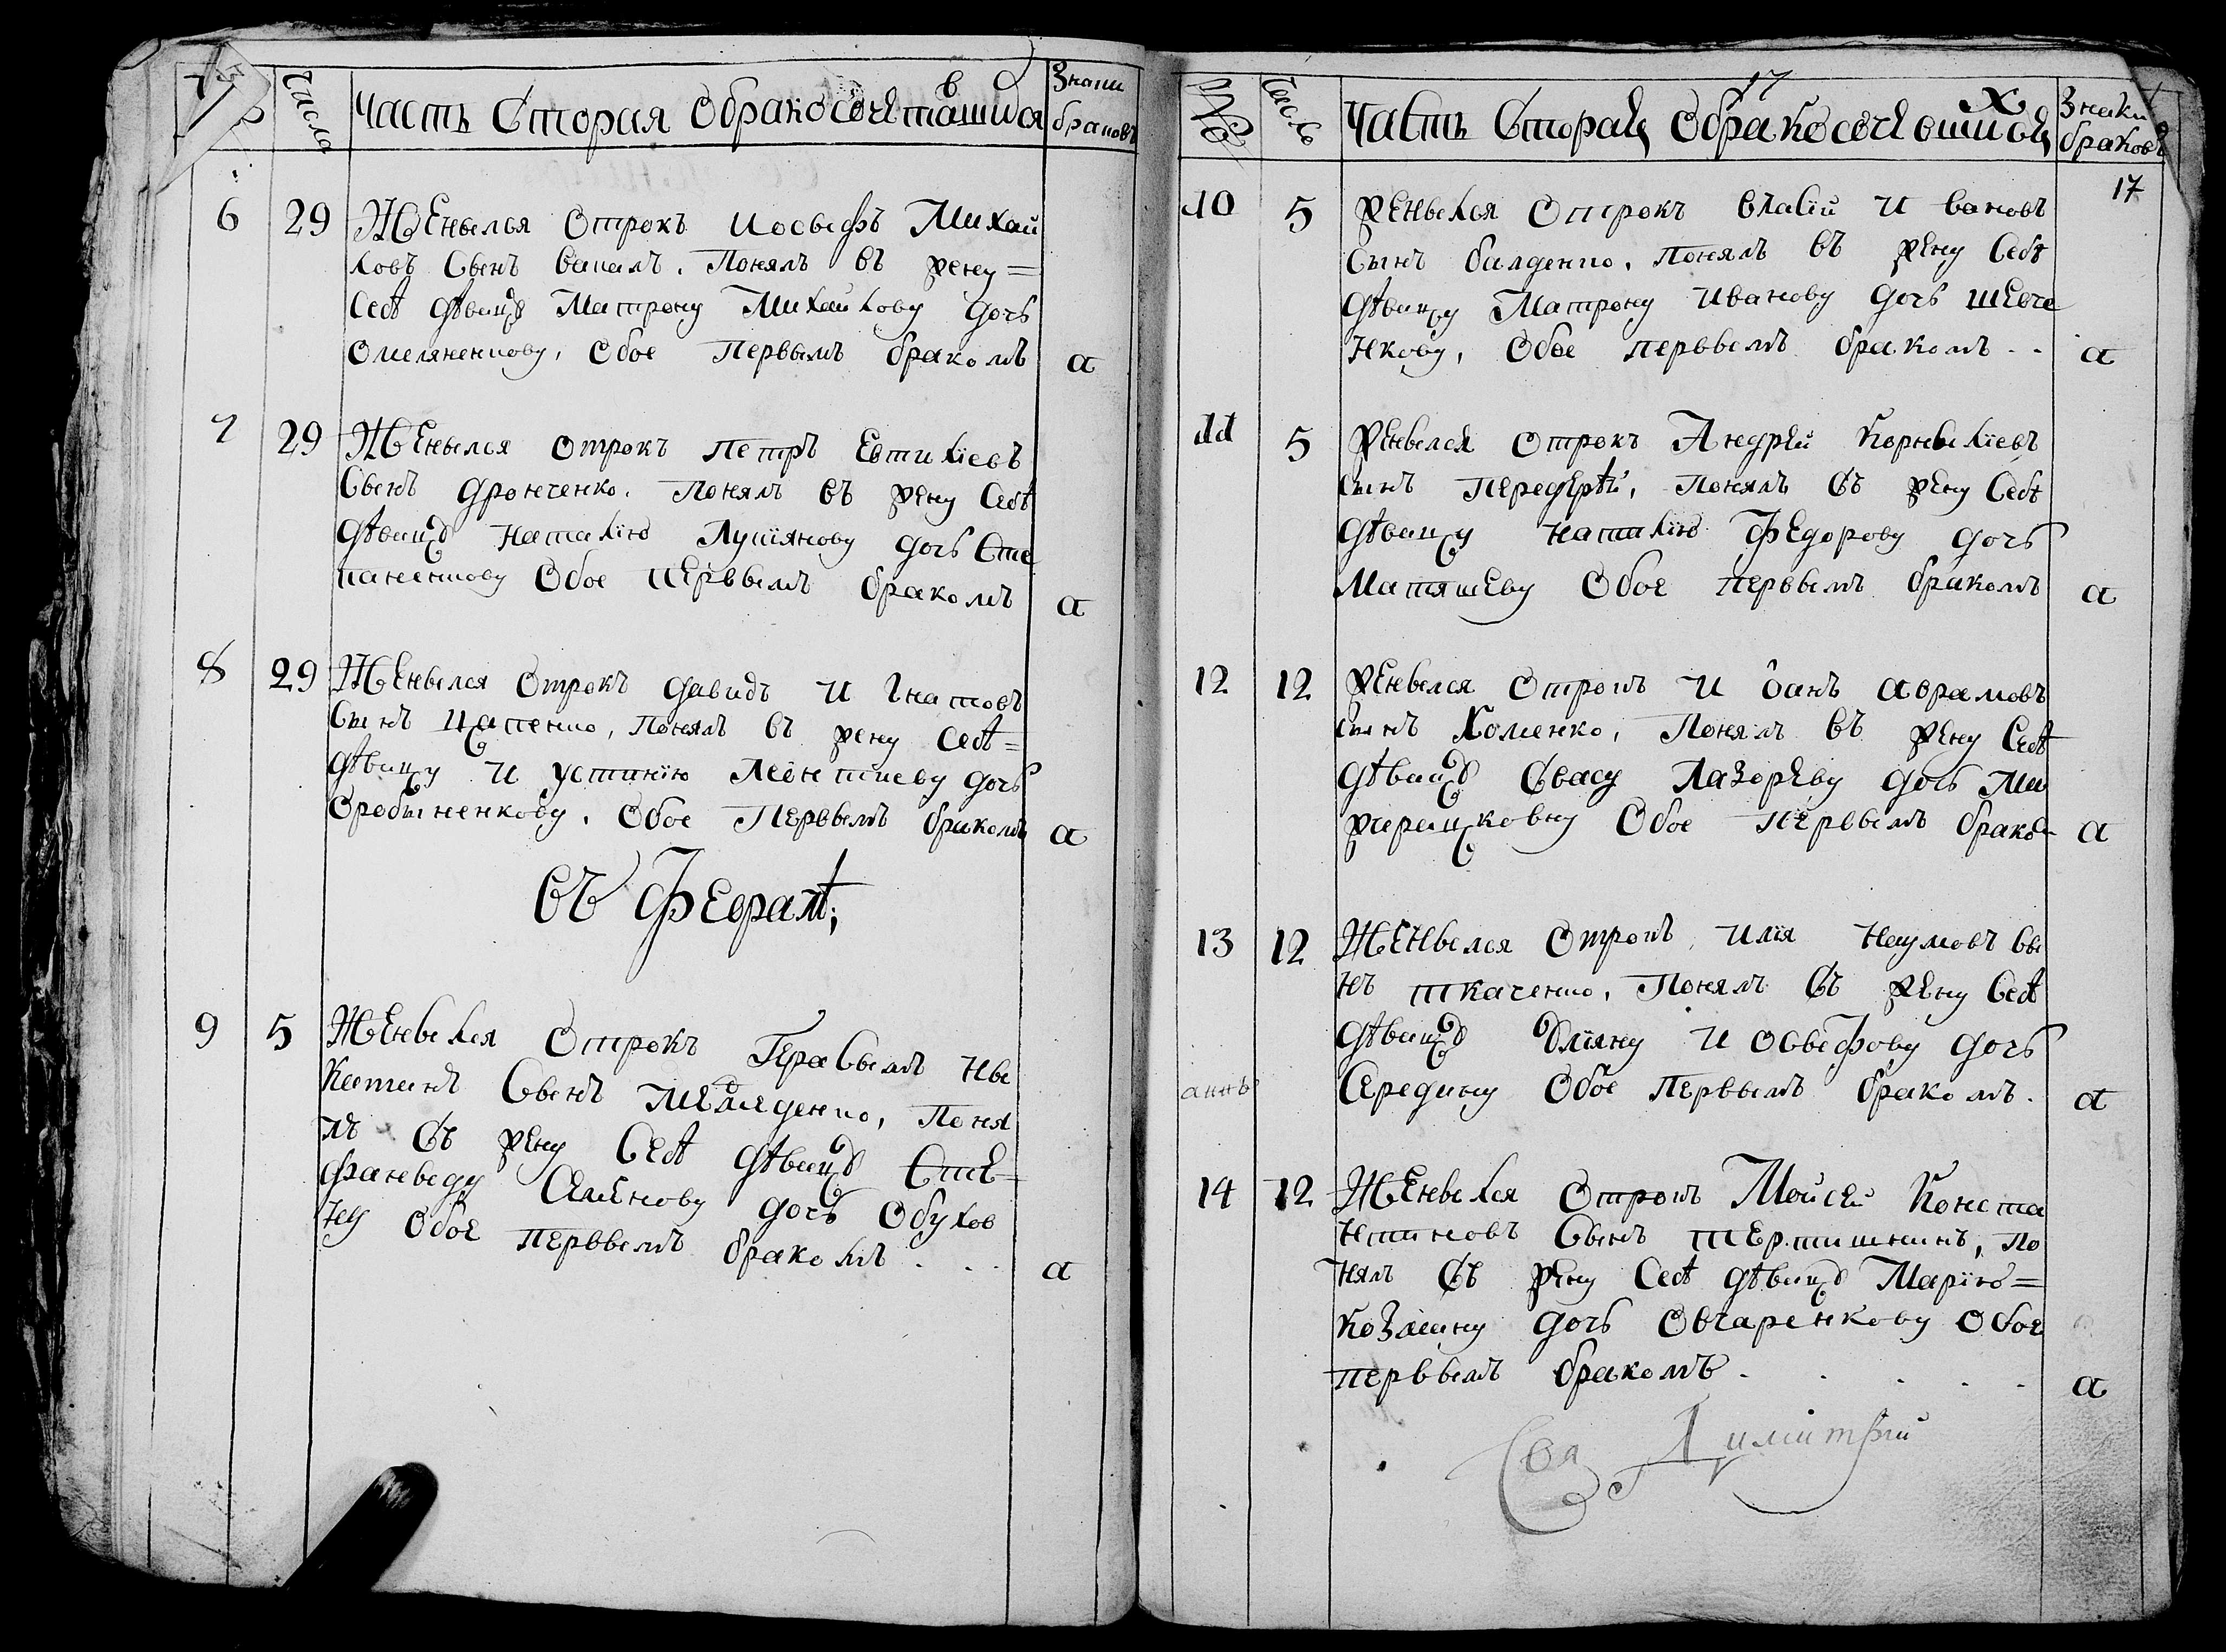 Числа
Часть Вторая Обракосочетавшися
Знаки
браковъ
6 29 Женылся Отрокъ Иосыфъ Михай
ловъ Сынъ Вакалъ, Понялъ въ жену =
Себѣ дѣвицу Матрону Михайлову дочъ
Омеляненкову, Обое Первымъ бракомъ а
7 29 Женылся отрокъ петръ Евтихїевъ
Сынъ дронченко, Понялъ въ жену Себѣ
дѣвицу Наталїю Лукїянову дочъ Сте
паненкову Обое первымъ бракомъ а
8 29 Женылся Отрокъ давидъ Игнатовъ
Сынъ Цапенко, Понялъ въ жену Себѣ =
дѣвицу И устинїю Леонтиеву дочъ
Оробыненкову, Обое Первымъ бракомъ а
Въ Февралѣ;
9 5 Женылся Отрокъ Герасымъ Ны
китинъ Сынъ Медведенко, Поня
лъ въ жену Себѣ дѣвицу Сте
фаныду Семенову дочъ Обухов
ну Обое первымъ бракомъ . . . а
17
Числа
Часть Вторая Обракосочетшихся
Знаки
браковъ
17
10 5 Женылся Отрокъ Власїй Ивановъ
Сынъ билденко, Понялъ въ жену Себѣ
дѣвицу Матрону Иванову дочъ шевче
нкову, Обое первымъ бракомъ . . а
11 5 Женылся отрокъ Андрей Корнылїевъ
сынъ Передерѣй, Понялъ въ жену Себѣ
дѣвицу Наталїю Федорову дочъ
Матяшеву Обое первымъ бракомъ а
12 12 Женылся Отрокъ Иванъ Аврамовъ
сынъ Хоменко, Понялъ въ жену Себѣ
дѣвицу Евасу Лазореву дочъ Ми
ржерицковну Обое первымъ брако а
13 12 Женылся Отрокъ Илїя Наумовъ Сы
нъ ткаченко, Понялъ въ жену Себѣ
дѣвицу Улїяну Иосыфову дочъ
Середину Обое первымъ бракомъ. а
14 12 Женылся Отрокъ Мойсей Конста
нтиновъ Сынъ тертишнинъ, По
нялъ въ жену Себѣ дѣвицу Марїю =
Козмину дочъ Овчаренкову Обое
первымъ бракомъ . . . . . а
Димитрїй